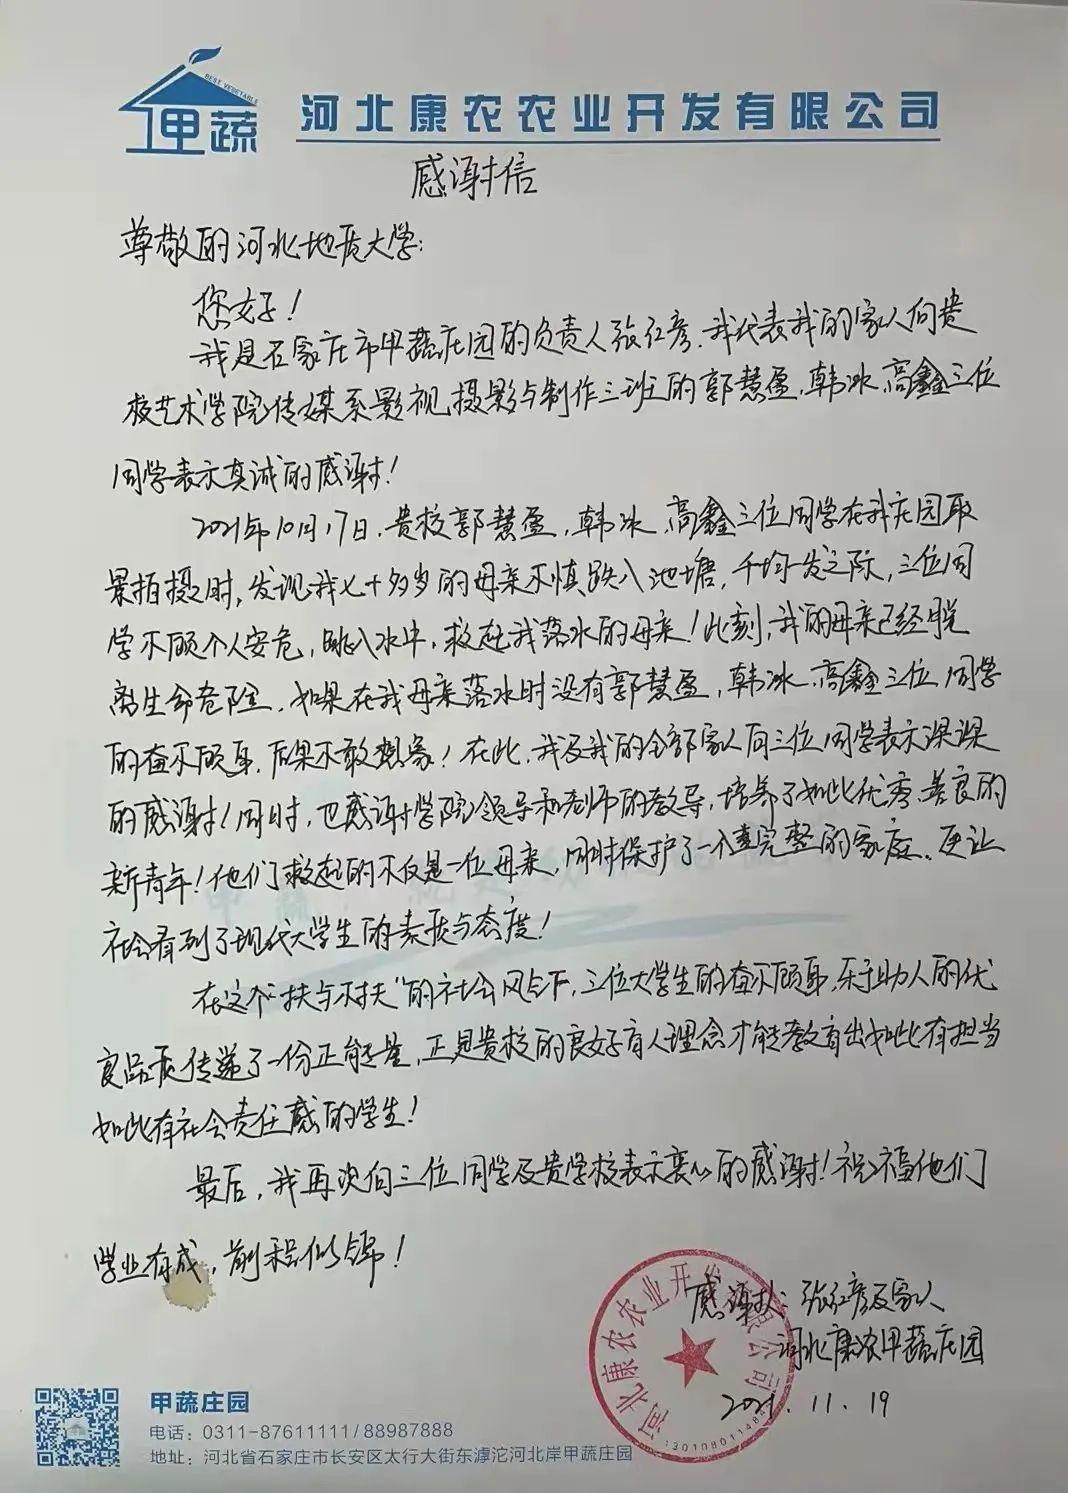 BEST VEGETABLE
甲蔬
河北康农农业开发有限公司
感谢信
尊敬的河北地质大学：
您好！
我是石家庄市甲蔬庄园的负责人张红彦，我代表我的家人向贵
校艺术学院传媒系影视摄影与制作三班的郭慧盈，韩冰、高鑫三位
同学表示真诚的感谢！
2021年10月17日，贵校郭慧盈，韩冰、高鑫三位同学在我庄园取
景拍摄时，发现我七十多岁的母亲不慎跌入池塘，千均一发之际，三位同
学不顾个人安危，跳入水中，救起我落水的母亲！此刻，我的母亲已经脱
离生命危险，如果在我母亲落水时没有郭慧盈，韩冰、高鑫三位同学
的奋不顾身，后果不敢想象！在此，我及我的全部家人向三位同学表示深深
的感谢！同时，也感谢学院领导和老师的教导，培养了如此优秀、善良的
新青年！他们救起的不仅是一位母亲，同时保护了一个完整的家庭、更让
社会看到了现代大学生的素质与态度！
在这个“扶与不扶”的社会风气下，三位大学生的奋不顾身，乐于助人的优
良品质传递了一份正能量，正是贵校的良好育人理念才能教育出如此有担当
如此有社会责任感的学生！
最后，我再次向三位同学及贵学校表示衷心的感谢！祝福他们
学业有成，前程似锦！
感谢人：张红彦及家人
河北康农甲蔬庄园
2021.11.19
河北康农农业开发有限公司
甲蔬庄园
电话：0311-87611111/88987888
地址：河北省石家庄市长安区太行大街东滹沱河北岸甲蔬庄园